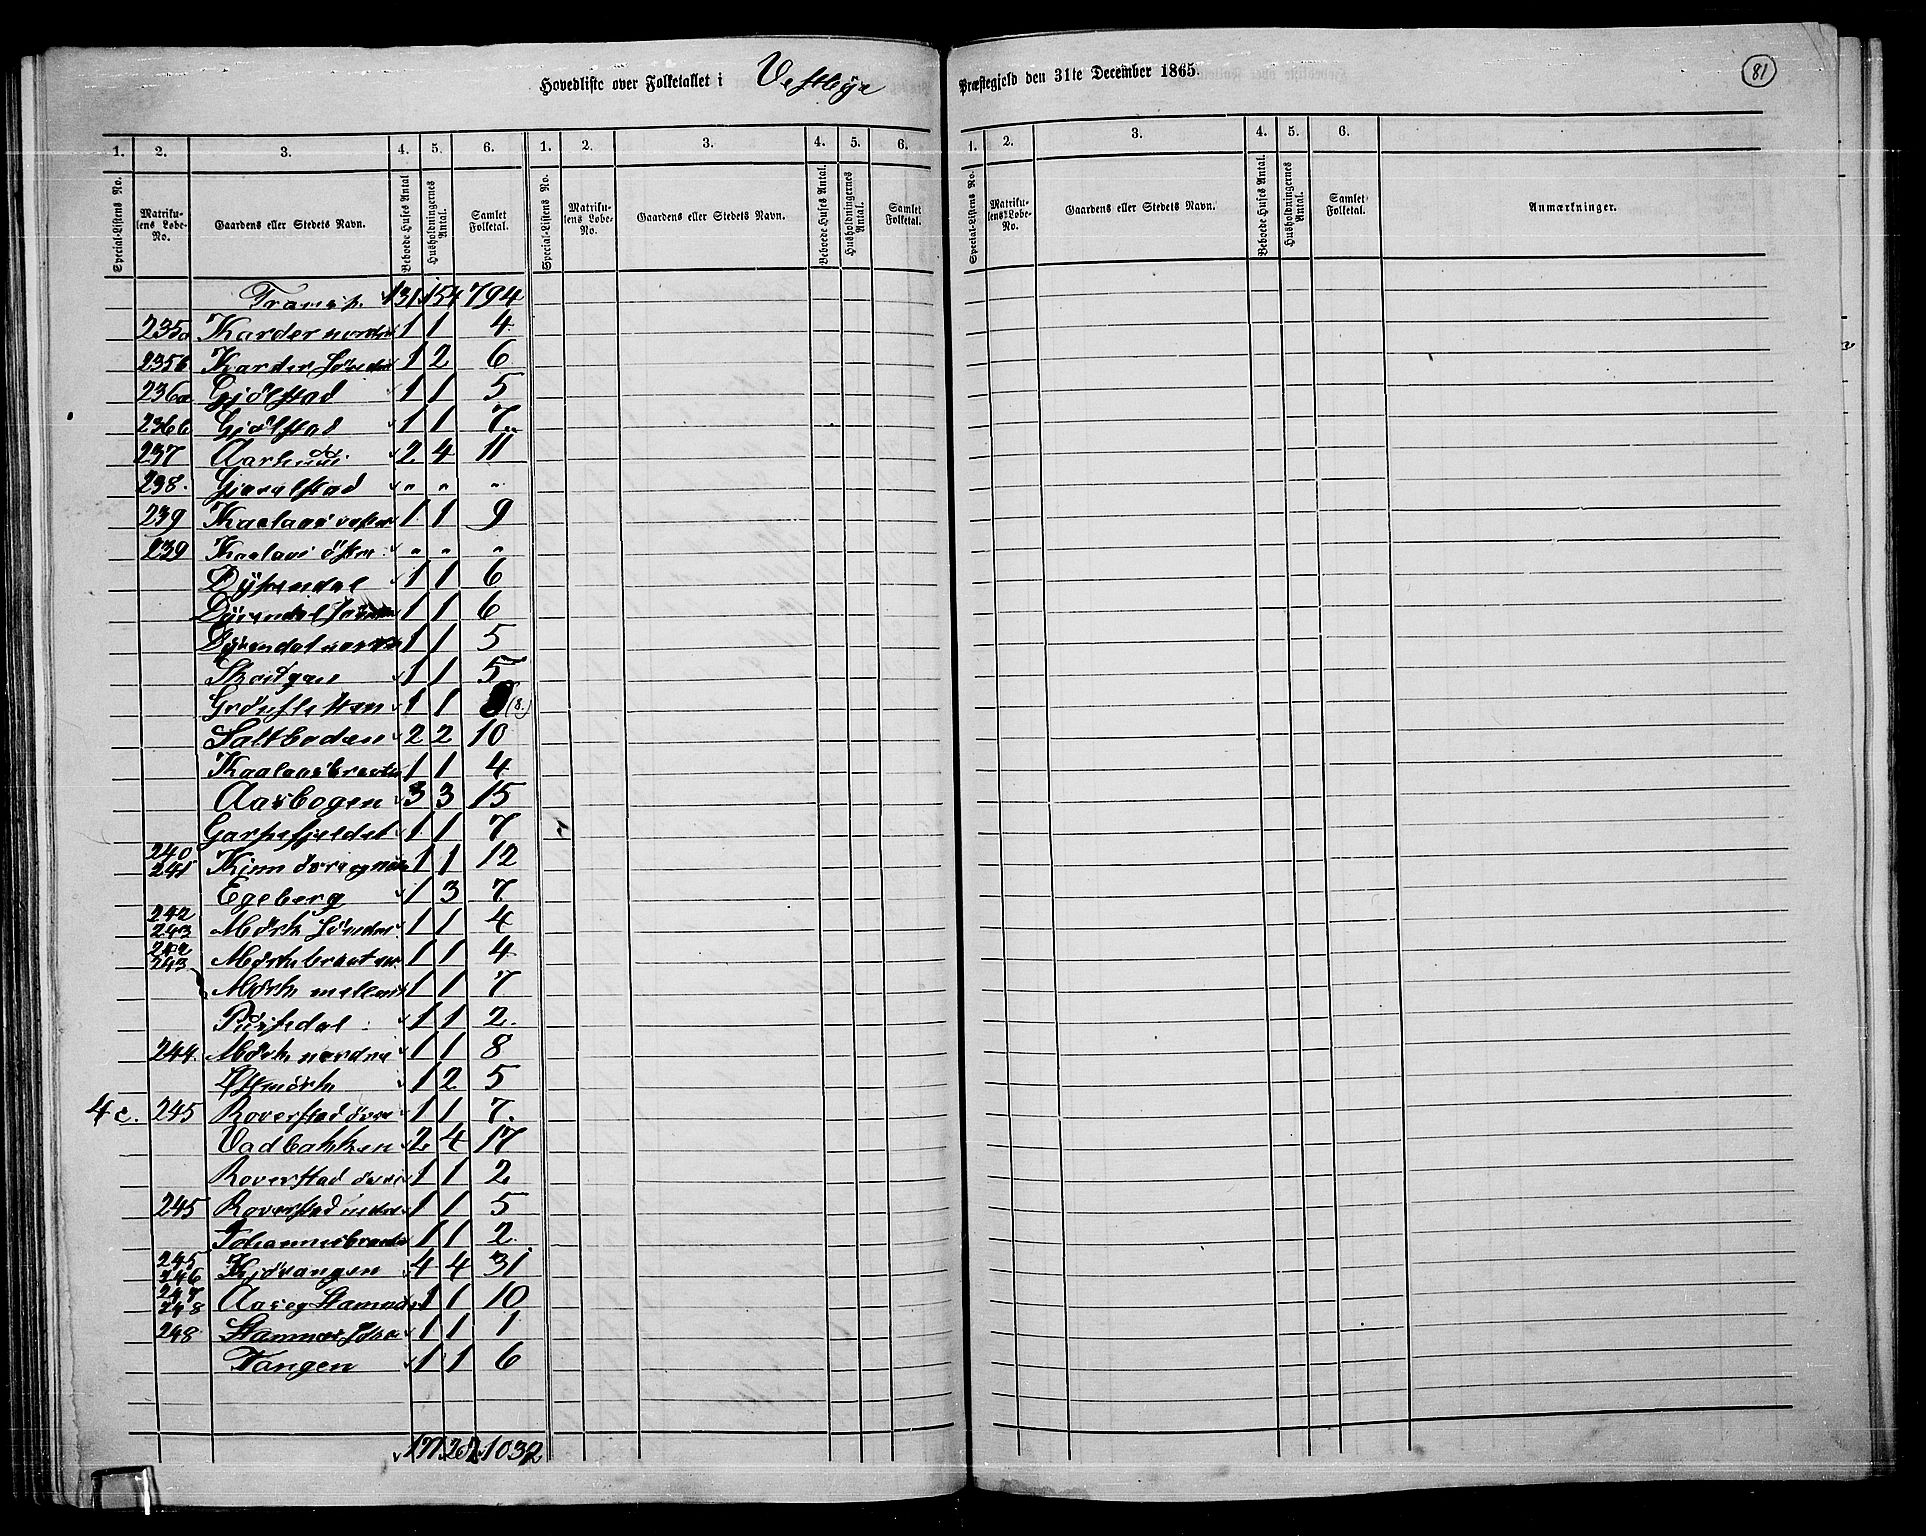 Hovedliste over Folketallet i Vestbye Præstegjeld den 31te December 1865.
81
1. 2. 3. 4. 5. 6. 1. 2. 3. 4. 5. 6. 1. 2. 3. 4. 5. 6.
Special-Listens No. Matrikulens Løbe-No. Gaardens eller Stedets Navn. Beboede Huses Antal Husholdningernes Antal. Samlet Folketal. Special-Listens No. Matrikulens Løbe-No. Gaardens eller Stedets Navn. Beboede Huses Antal. Husholdningernes Antal. Samlet Folketal. Special-Listens No. Matrikulens Løbe-No. Gaardens eller Stedets Navn. Beboede Huses Antal. Husholdningernes Antal. Samlet Folketal. Anmærkninger.
Transp. 131 154 794
235a Karder nordre 1 1 4
235b Karder söndre 1 2 6
236a Gjölstad 1 1 5
236b Gjölstad 1 1 7
237 2 4 11
238. Gjövelstad " " "
239 Kaalaas vestre 1 1 9
239 Kaalaas östre " " "
Dyrendal 1 1 6
Dyrendal söndre 1 1 6
Dyrendal nordre 1 1 5
1 1 5
Grönsletten 1 1 (8.)
Saltboden 2 2 10
Kaalaasbraaten 1 1 4
Aasbogen 3 3 15
Garhefjeldet 1 1 7
240 241 Kinn övre og nedre 1 1 12
Egeberg 1 3 7
242 243 Mörk söndre 1 1 4
242 243 Mörkbraaten 1 1 4
Mörk mellem 1 1 7
1 1 2.
244. Mörk nordre 1 1 8
1 2 5
4c. 245 Roverstad övre 1 1 7.
Vadbakken 2 4 17
Roverstad övre 1 1 2
245 Roverstad nedre 1 1 5
Johannesbraaten 1 1 2
245 246 Kjövangen 4 4 31
247 248 Aas og Stamnæs 1 1 10
248 Stamnæs 1 1 1
Tangen 1 1 6
171 202 1032